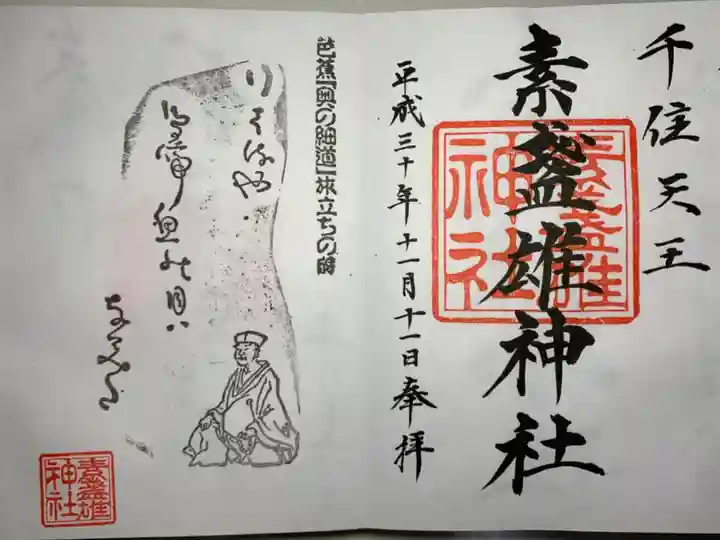 千住天王
素盞雄神社
素盞雄
神社
平成三十年十一月十一日奉拝
芭蕉「奥の細道」旅立ちの碑
行く春や
鳥啼魚の目ハ
なみだ
素盞雄
神社